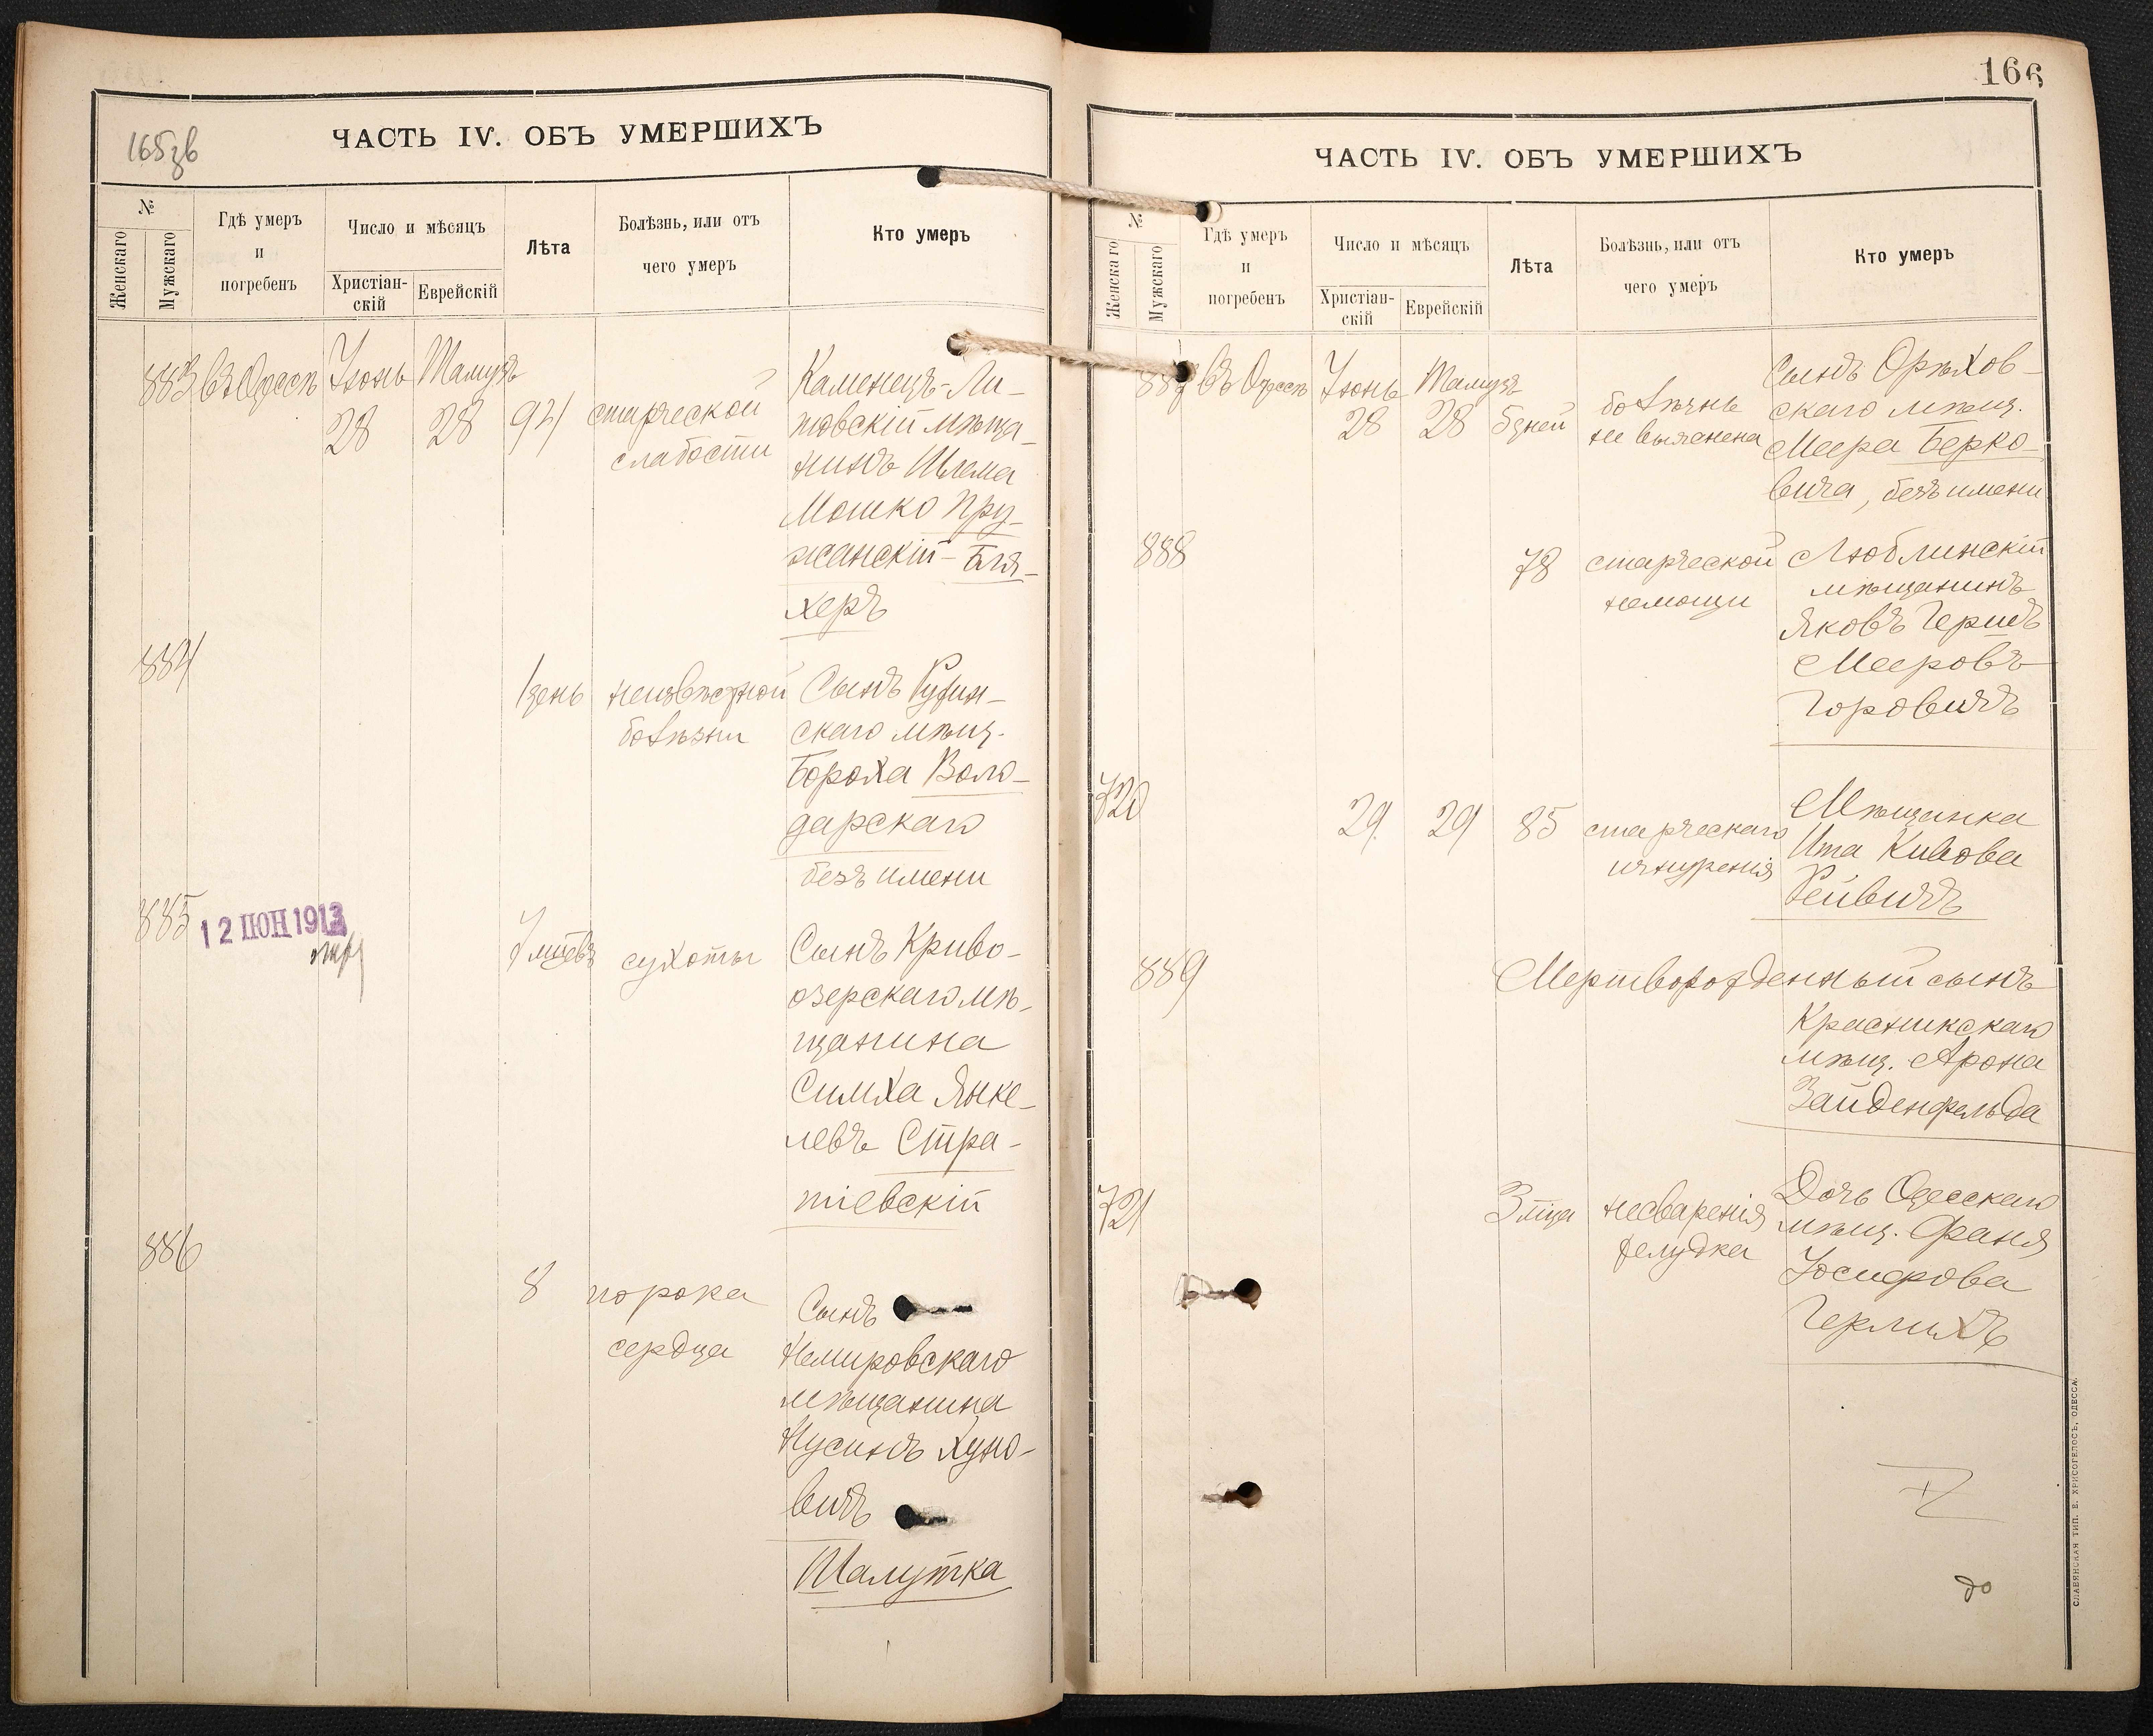 165зв
ЧАСТЬ IV. ОБЪ УМЕРШИХЪ
№
Женскаго
Мужскаго
Гдѣ умеръ
и
погребенъ
Число и мѣсяцъ
Христіан-
скій
Еврейскій
Лѣта
Болѣзнь, или отъ
чего умеръ
Кто умеръ
883 въ Одессѣ Іюнь Тамузъ
28 28 94 старческой
слабости
Каменецъ-Ли-
товскій мѣща-
нинъ Шлема
Мошко Пру-
жанскій-Бля-
херъ
884
1 день неизвѣстной
болѣзни
Сынъ
скаго мѣщ.
Бороха Воло-
дарскаго
безъ имени
885 12 ІЮН 1913
7 мѣсевъ сухоты
Сынъ Криво-
озерскаго мѣ-
щанина
Симха Янке-
левъ Стра-
тіевскій
886
8 порока
сердца
Сынъ
Немировскаго
мѣщанина
Нусинъ Хуно-
вичъ
Шалутка
166
ЧАСТЬ IV. ОБЪ УМЕРШИХЪ
№
Женскаго
Мужскаго
Гдѣ умеръ
и
погребенъ
Число и мѣсяцъ
Христіан-
скій
Еврейскій
Лѣта
Болѣзнь, или отъ
чего умеръ
Кто умеръ
887 въ Одессѣ Іюнь Тамузъ
28 28 6 дней болѣзнь
не выяснена
Сынъ Орѣхов-
скаго мѣщ.
Меера Берко-
вича, безъ имени
888
78 старческой
немощи
Люблинскій
мѣщанинъ
Яковъ Гершъ
Мееровъ
Горовичъ
720
29 29 85 старческаго
изнуренія
Мѣщанка
Ита Кивова
Рейвичъ
889
Мертворожденный сынъ
Красникскаго
мѣщ. Арона
Зайденфельда
721
3 мѣца несваренія
желудка
Дочь Одесскаго
мѣщ. Фаня
Іосифова
Герлихъ
до
СЛАВЯНСКАЯ ТИП. Е. ХРИСОГЕЛОСЪ, ОДЕССА.